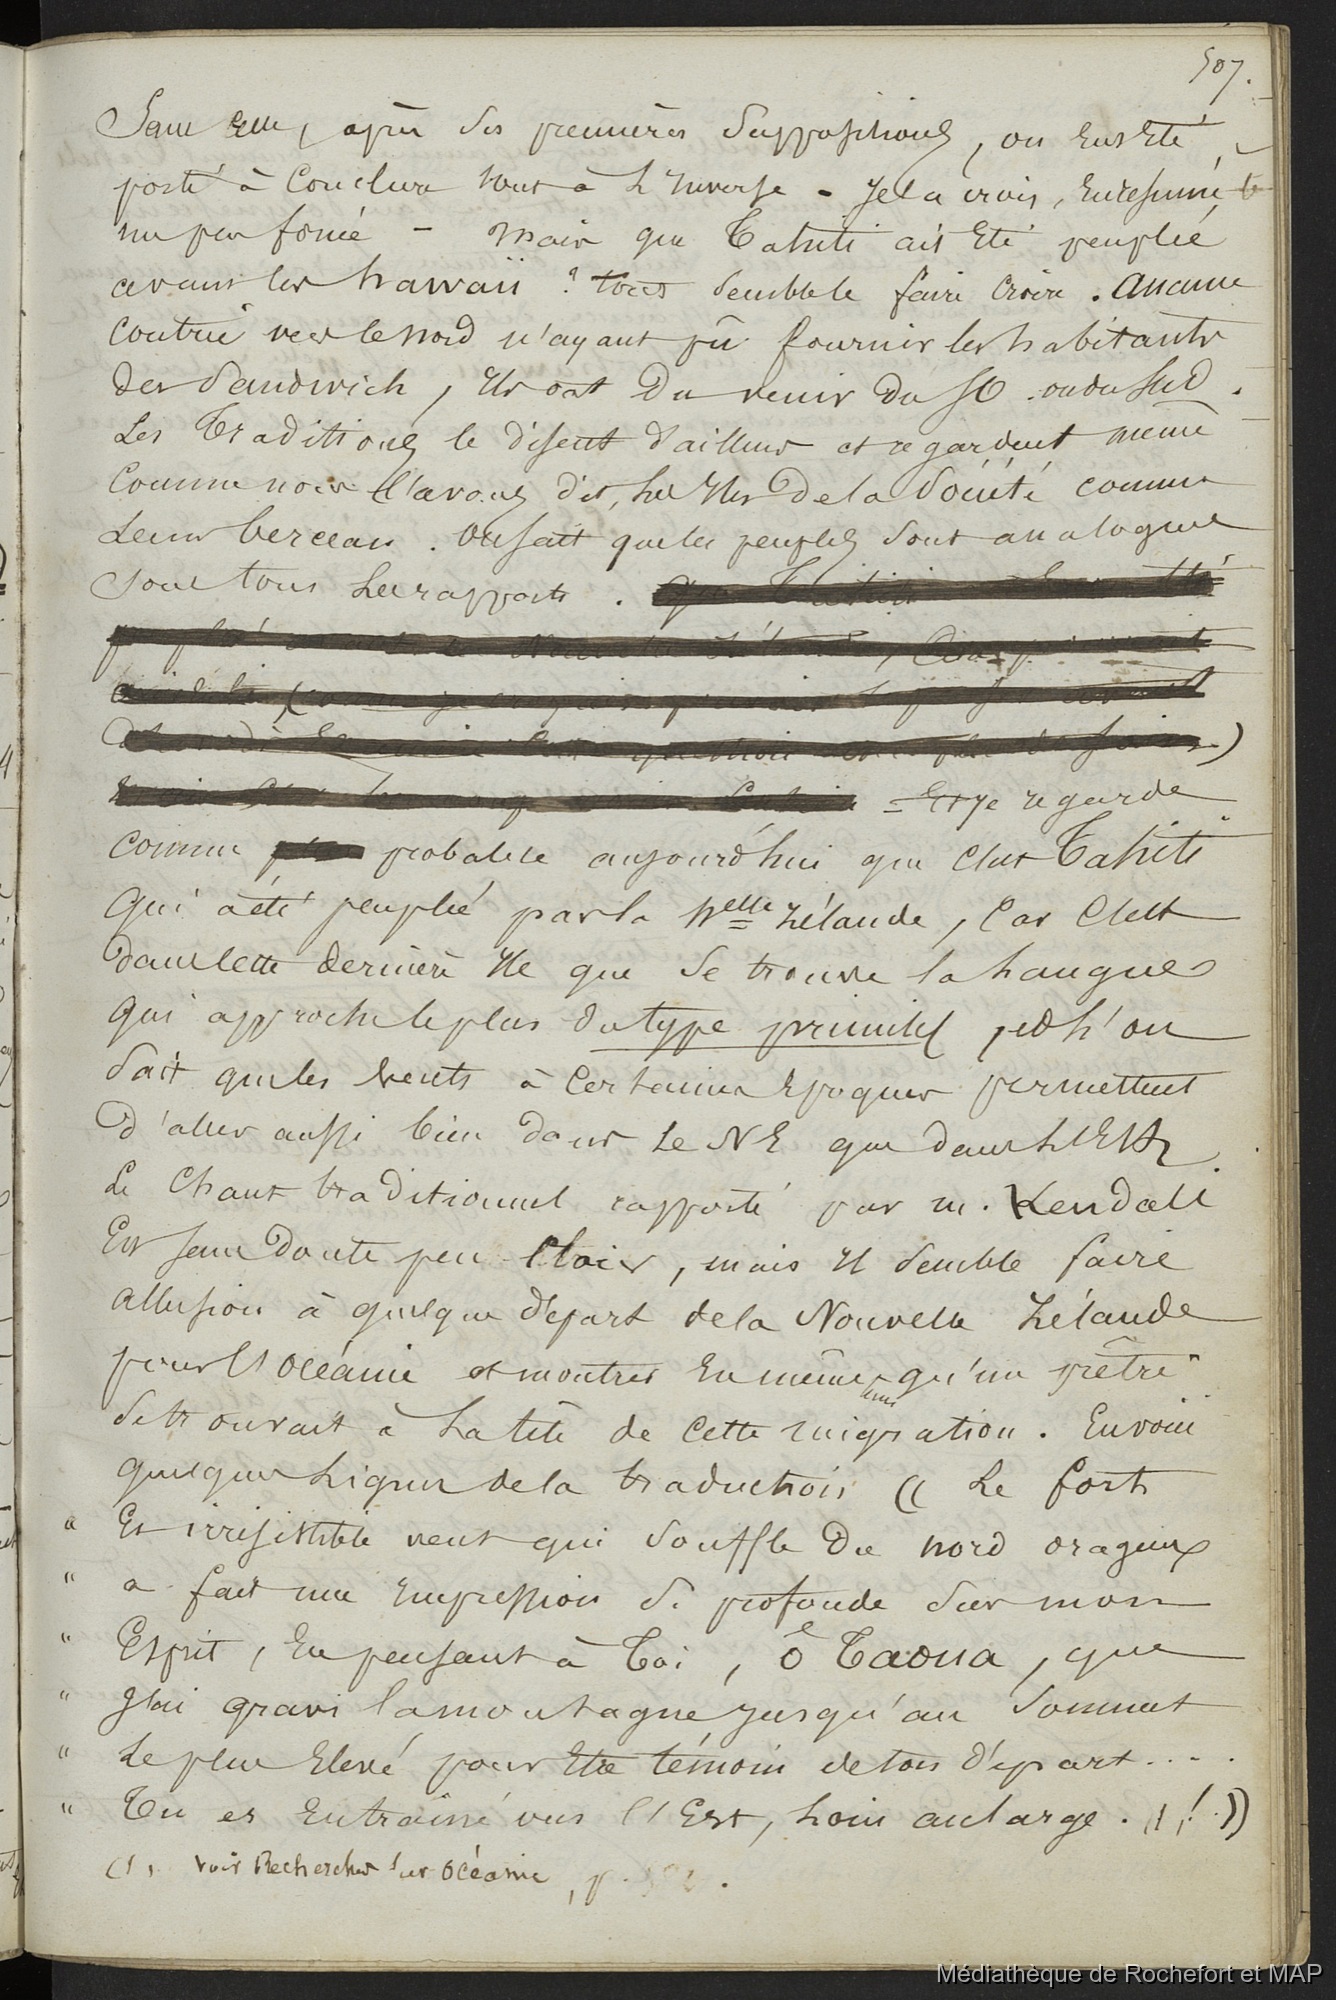 507.
Sans elle, après ses premières suppositions, on eut été
porté à conclure tout à l'inverse - Je la crois, en resumé
un peu forcée - Mais que Tahiti ait été peuplée
avant les hawaii ? tout semble le faire croire. Aucune
contrée vers le nord n'ayant pû fournir les habitants
des Sandwich, ils ont du venir du SO. ou du Sud.
Les Traditions le disent d'ailleurs et regardent même
comme nous l'avons dit, les Iles de la Société comme
leur berceau. On sait que les peuples sont analogues
sous tous les rapports.
= Et je regarde
comme probable aujourd'hui que c'est Tahiti
qui à été peuplé par la Nelle Zélande, car c'est
dans cette dernière Ile que se trouve la langue
qui approche le plus du type primitif, et l'on
sait que les vents à certaines époques permettent
d'aller aussi bien dans le NE que dans l'Est.
Le Chant traditionnel rapporté par m. Kendall
est sans doute peu clair, mais il semble faire
allusion à quelque départ de la Nouvelle Zélande
pour l'océanie et montrer en même tems qu'un prêtre
se trouvait à la tête de cette migration. En voici
quelques lignes de la traduction (( Le fort
" et irrésistible vent qui souffle du nord orageux
" a fait une impression si profonde sur mon
" Esprit, en pensant à Toi, ô Taoua, que
" j'ai gravi la montagne jusqu'au sommet
" le plus élevé pour être témoin de ton départ....
" Tu es entraîné vers l'Est, loin au large. (1)! ))
(1) voir Recherches sur océanie, p.
Médiathèque de Rochefort et MAP